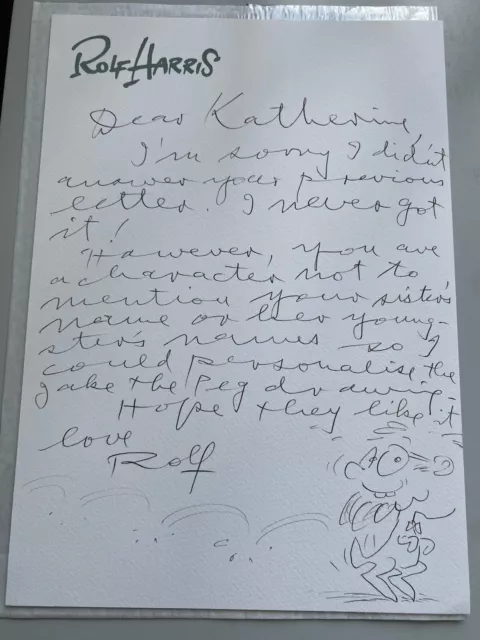 ROLF HARRIS
Dear Katherine,
I'm sorry I didn't
answer your previous
letter. I never got
it!
However, you are
a character not to
mention your sister's
name or her young-
ster's names so I
could personalise the
Jake the Peg drawing.
Hope they like it
love
Rolf